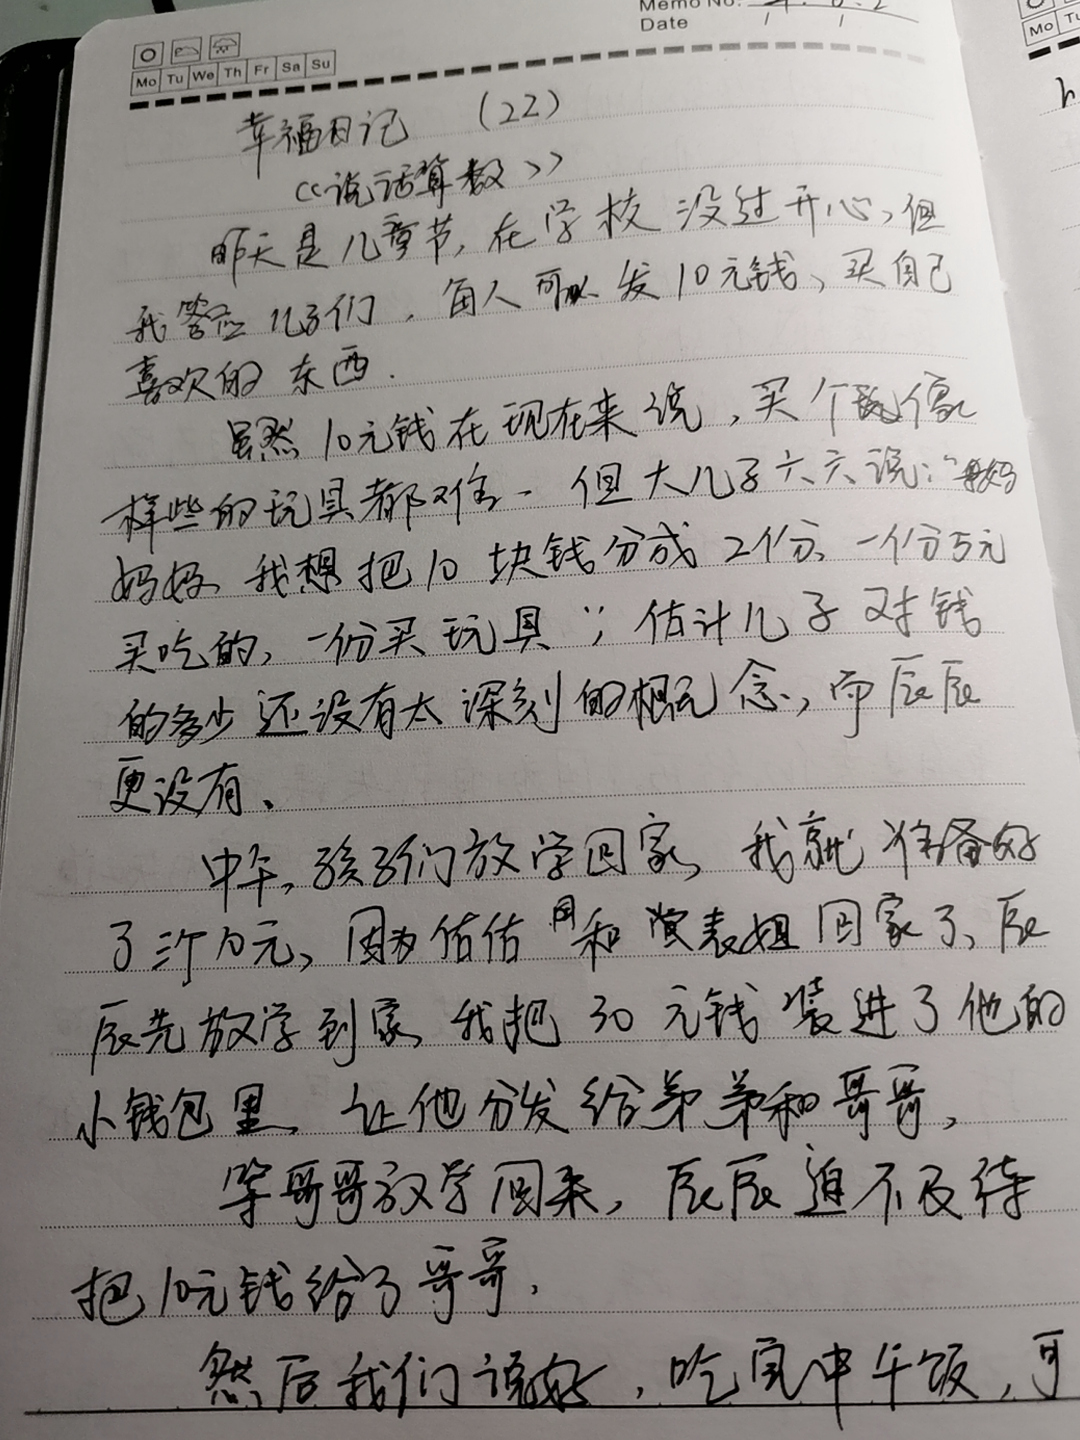 Memo No.
Date
Mo Tu We Th Fr Sa Su
Mo Tu
幸福日记 (22)
《说话算数》
昨天是儿童节,在学校没过开心,但
我答应儿子们,每人可以发10元钱、买自己
喜欢的东西.
虽然10元钱在现在来说,买个像
样些的玩具都难、但大儿子六六说:"
妈妈、我想把10块钱分成2份、一份5元
买吃的,一份买玩具";估计儿子对钱
的多少还没有太深刻的概念、而辰辰
更没有、
中午,孩子们放学回家,我就准备好
了三个10元,因为佑佑和表姐回家了、辰
辰先放学到家,我把30元钱装进了他的
小钱包里,让他分发给弟弟和哥哥,
等哥哥放学回来,辰辰迫不及待
把10元钱给了哥哥,
然后我们说好,吃完中午饭,可